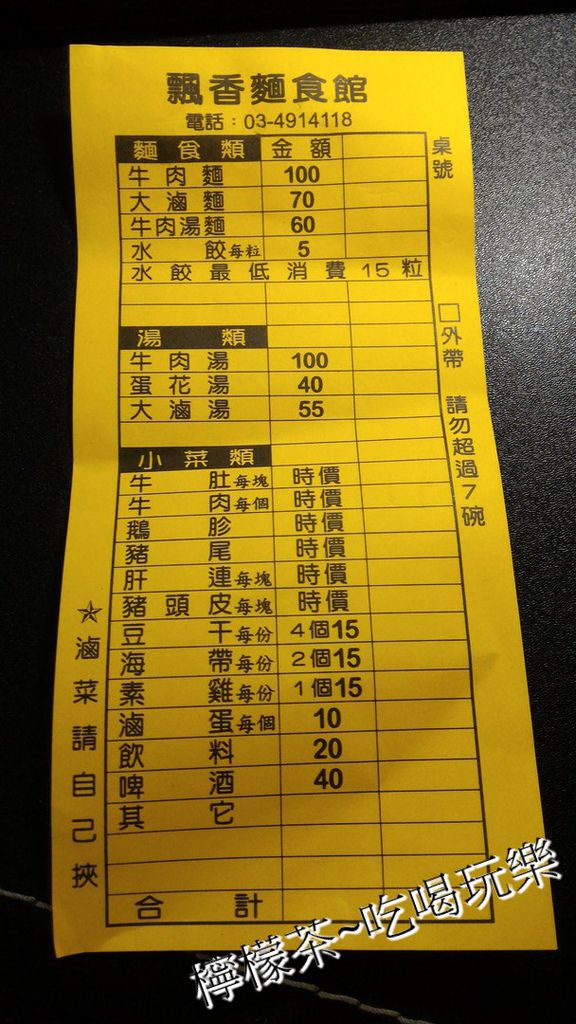 飄香麵食館
電話：03-4914118
麵食類 金額
牛肉麵 100
大滷麵 70
牛肉湯麵 60
水餃每粒 5
水餃最低消費15粒
湯類
牛肉湯 100
蛋花湯 40
大滷湯 55
小菜類
牛肚每塊 時價
牛肉每個 時價
鵝胗 時價
豬尾 時價
肝連每塊 時價
豬頭皮每塊 時價
豆干每份 4個15
海帶每份 2個15
素雞每份 1個15
滷蛋每個 10
飲料 20
啤酒 40
其它
合計
桌號
□外帶 請勿超過7碗
☆滷菜請自己挾
檸檬茶~吃喝玩樂